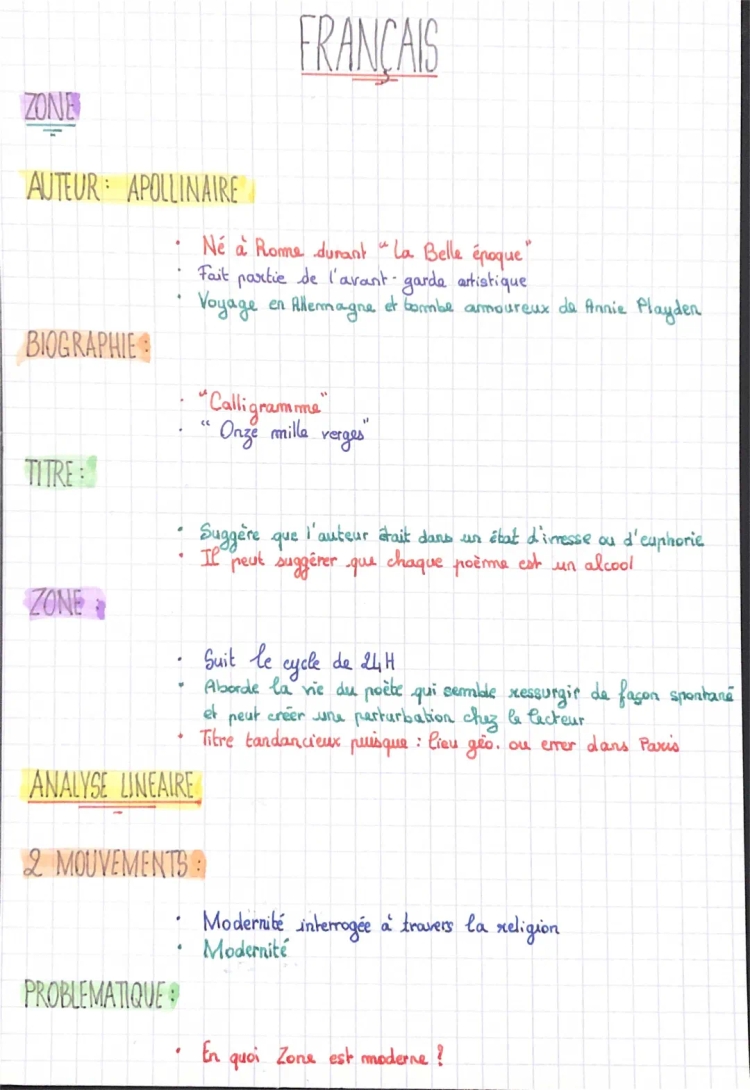 FRANÇAIS
ZONE
AUTEUR : APOLLINAIRE
• Né à Rome durant "La Belle époque"
• Fait partie de l'avant-garde artistique
• Voyage en Allemagne et tombe amoureux de Annie Playden
BIOGRAPHIE :
• "Calligramme"
• "Onze mille verges"
TITRE :
• Suggère que l'auteur était dans un état d'ivresse ou d'euphorie
• Il peut suggérer que chaque poème est un alcool
ZONE :
• Suit le cycle de 24H
• Aborde la vie du poète qui semble ressurgir de façon spontané
et peut créer une perturbation chez le lecteur
• Titre tandancieux puisque : lieu géo. ou errer dans Paris
ANALYSE LINEAIRE
2 MOUVEMENTS :
• Modernité interrogée à travers la religion
• Modernité
PROBLEMATIQUE :
• En quoi Zone est moderne ?